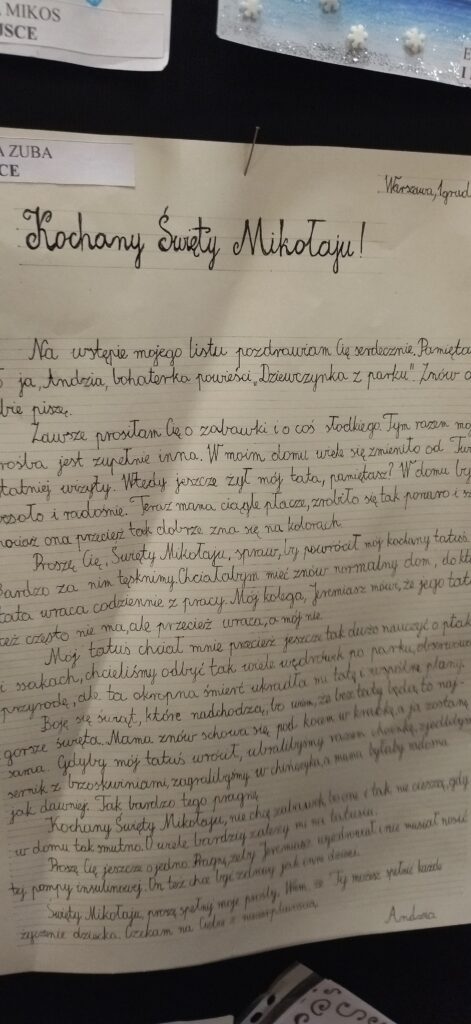 MIKOS
JSCE
ZUBA
CE
Warszawa, 1 grud
Kochany Święty Mikołaju!
Na wstępie mojego listu pozdrawiam Cię serdecznie. Pamięta
ja, Andzia, bohaterka powieści „Dziewczynka z parku". Znów
bie piszę.
Zawsze prosiłam Cię o zabawki i o coś słodkiego. Tym razem mo
rośba jest zupełnie inna. W moim domu wiele się zmieniło od Tw
tatniej wizyty. Wtedy jeszcze żył mój tata, pamiętasz? W domu by
esoło i radośnie. Teraz mama ciągle płacze, zrobiło się tak ponuro i s
hociaż ona przecież tak dobrze zna się na kolorach.
Proszę Cię, Święty Mikołaju, spraw, by powrócił mój kochany tatuś
Bardzo za nim tęsknimy. Chciałabym mieć znów normalny dom, do któ
tata wraca codziennie z pracy. Mój kolega, Jeremiasz mówi, że jego tat
też często nie ma, ale przecież wraca, a mój nie.
Mój tatuś chciał mnie przecież jeszcze tak dużo nauczyć o ptak
i ssakach, chcieliśmy odbyć tak wiele wędrówek po parku, obserwować
przyrodę, ale ta okropna śmierć ukradła mi tatę i wspólne plany.
Boję się świąt, które nadchodzą, bo wiem, że bez taty będą to naj-
gorsze święta. Mama znów schowa się pod kocem w kratkę, a ja zostanę
sama. Gdyby mój tatuś wrócił, ubralibyśmy razem choinkę, zjedlibyśm
sernik z brzoskwiniami, zagralibyśmy w chińczyka, a mama byłaby radosna
jak dawniej. Tak bardzo tego pragnę.
Kochany Święty Mikołaju, nie chcę zabawek, bo one i tak nie cieszą, gdy
w domu tak smutno. O wiele bardziej zależy mi na tatusiu.
Proszę Cię jeszcze o jedno. Pragnę, żeby Jeremiasz wyzdrowiał i nie musiał nosić
tej pompy insulinowej. On też chce być zdrowy jak inne dzieci.
Święty Mikołaju, proszę spełnij moje prośby. Wiem, że Ty możesz spełnić każde
życzenie dziecka. Czekam na Ciebie z niecierpliwością
Andzia